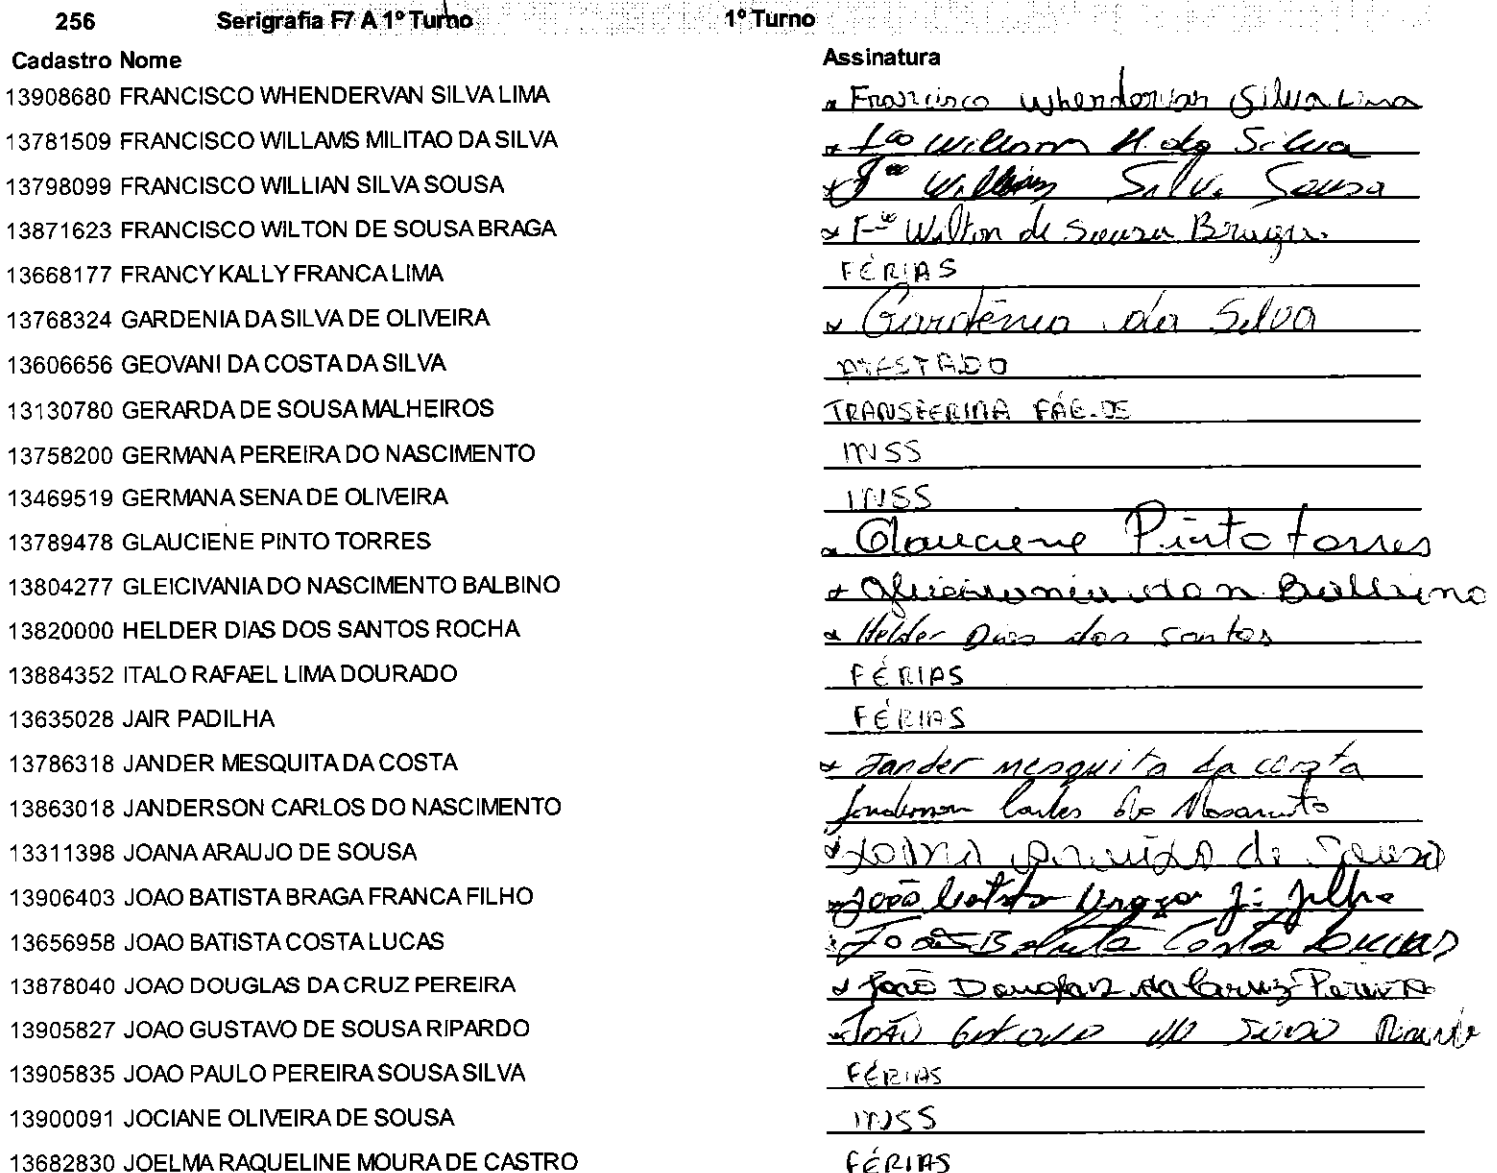 256 Serigrafia F7 A 1º Turno 1º Turno
Cadastro Nome Assinatura
13908680 FRANCISCO WHENDERVAN SILVA LIMA x Francisco Whendervan Silva Lima
13781509 FRANCISCO WILLAMS MILITAO DA SILVA x Fco William M. da Silva
13798099 FRANCISCO WILLIAN SILVA SOUSA x Fco Willian Silva Sousa
13871623 FRANCISCO WILTON DE SOUSA BRAGA x Fco Wilton de Sousa Braga.
13668177 FRANCY KALLY FRANCA LIMA FÉRIAS
13768324 GARDENIA DA SILVA DE OLIVEIRA x Gardênia da Silva
13606656 GEOVANI DA COSTA DA SILVA ATESTADO
13130780 GERARDA DE SOUSA MALHEIROS TRANSFERIDA
13758200 GERMANA PEREIRA DO NASCIMENTO INSS
13469519 GERMANA SENA DE OLIVEIRA INSS
13789478 GLAUCIENE PINTO TORRES x Glauciene Pinto torres
13804277 GLEICIVANIA DO NASCIMENTO BALBINO x Gleicivania do n Balbino
13820000 HELDER DIAS DOS SANTOS ROCHA x Helder Dias dos santos
13884352 ITALO RAFAEL LIMA DOURADO FÉRIAS
13635028 JAIR PADILHA FÉRIAS
13786318 JANDER MESQUITA DA COSTA x Jander mesquita da costa
13863018 JANDERSON CARLOS DO NASCIMENTO Janderson Carlos do
13311398 JOANA ARAUJO DE SOUSA x Joana Araujo de Sousa
13906403 JOAO BATISTA BRAGA FRANCA FILHO x João batista Braga F. filho
13656958 JOAO BATISTA COSTA LUCAS x João Batista Costa Lucas
13878040 JOAO DOUGLAS DA CRUZ PEREIRA x João Douglas da Cruz Pereira
13905827 JOAO GUSTAVO DE SOUSA RIPARDO x João Gustavo de Sousa
13905835 JOAO PAULO PEREIRA SOUSA SILVA FÉRIAS
13900091 JOCIANE OLIVEIRA DE SOUSA INSS
13682830 JOELMA RAQUELINE MOURA DE CASTRO FÉRIAS